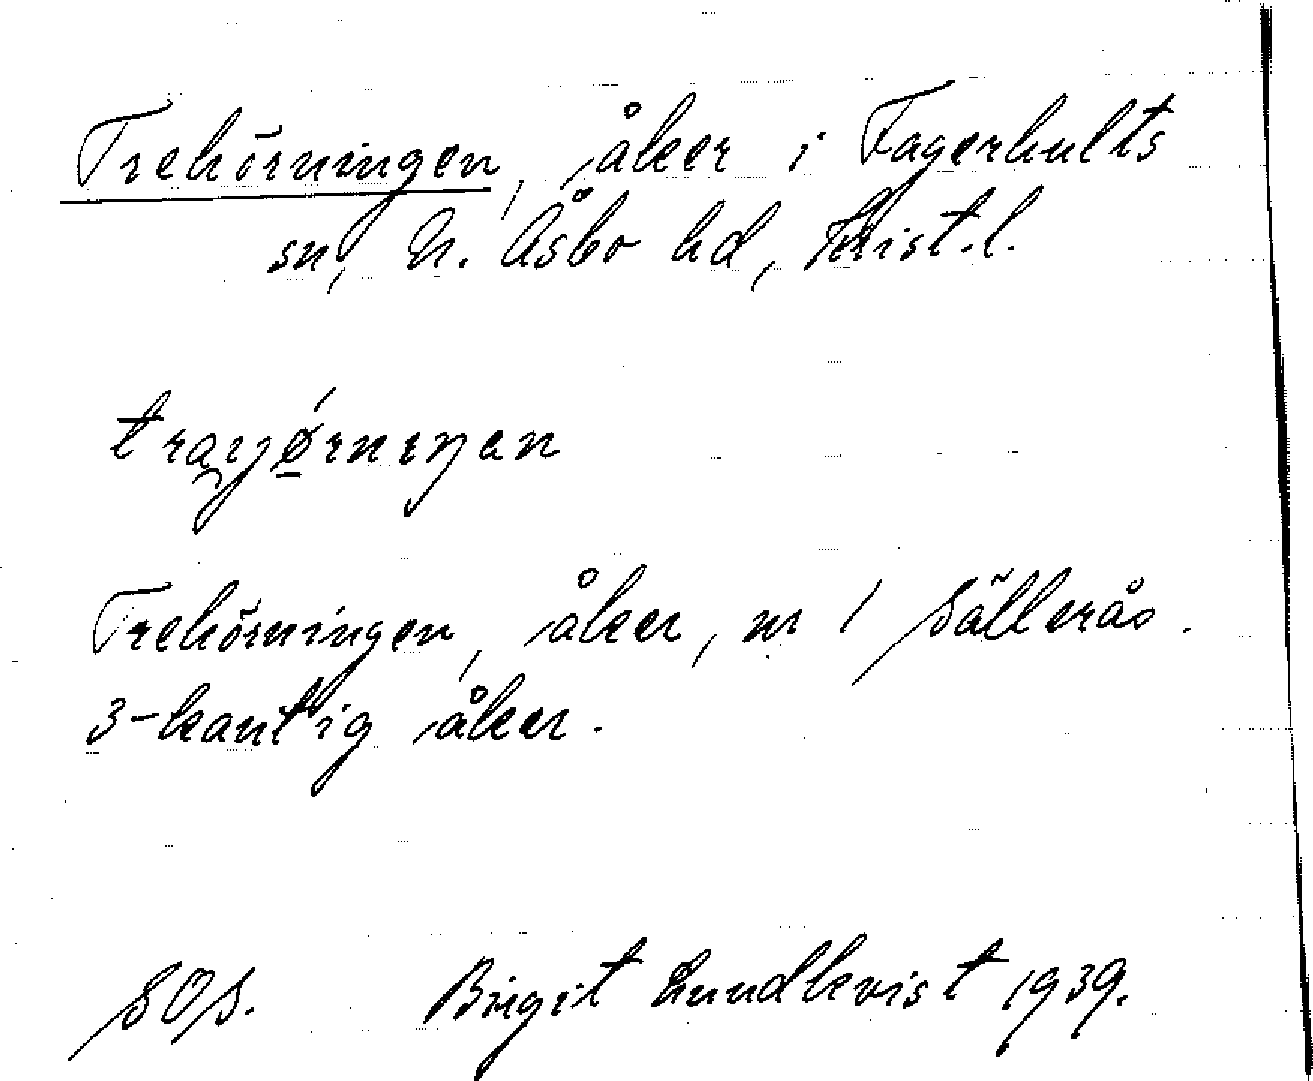 Trehörningen, åker i Fagerhults
sn, N. Åsbo hd, Krist. l.
Trehörningen, åker, nr 1 Sällerås.
3-kantig åker.
SOS. Birgit Lundkvist 1939.